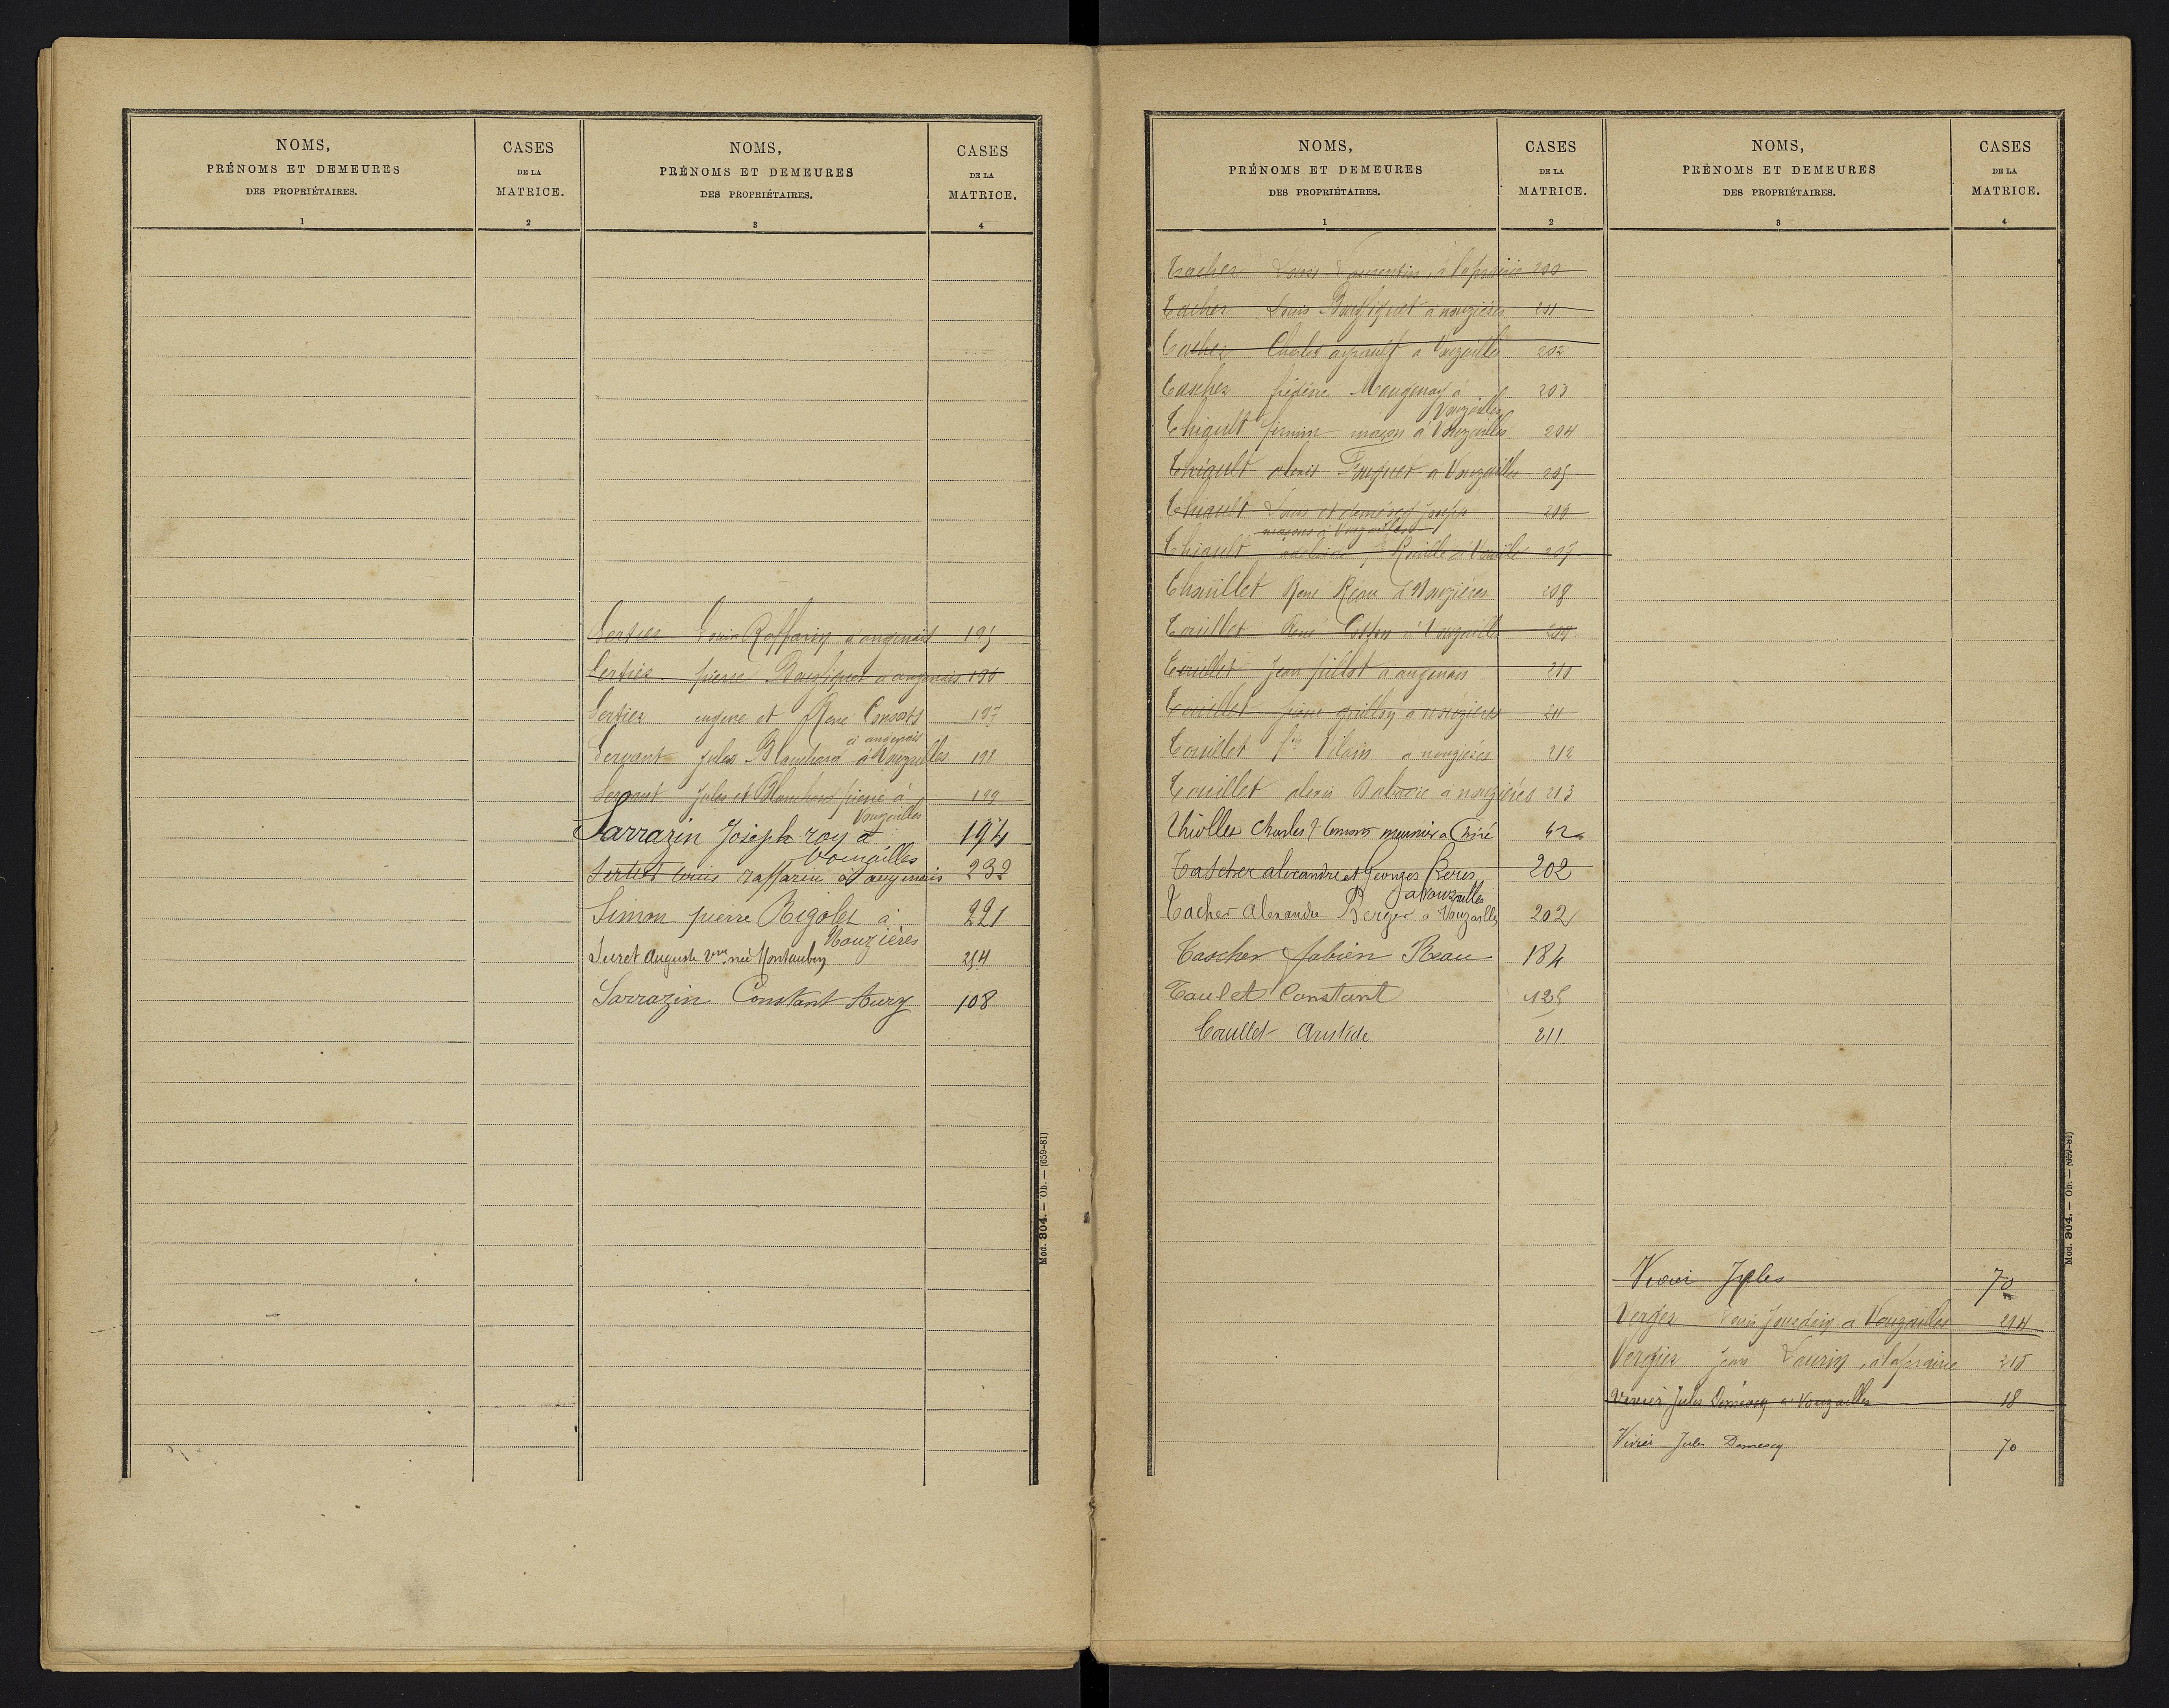 NOMS,
PRÉNOMS ET DEMEURES
DES PROPRIÉTAIRES.
1
CASES
DE LA
MATRICE.
2
NOMS,
PRÉNOMS ET DEMEURES
DES PROPRIÉTAIRES.
3
CASES
DE LA
MATRICE.
4
Sertier Louis Raffarin a angenais 195
Sertier pierre Bouffiquet a angenais 196
Sertier eugene et René Consorts 197
à angenais
Servant Jules Blanchard à Vouzailles 198
Servant Jules et Blanchard pierre à 199
Vouzailles
Sarrazin Joseph roy à 194
Vouzailles
Sertier Louis raffarin à angenais 232
Simon pierre Rigolet à 221
Nouzières
Suret Auguste Vve née Montaubin 254
Sarrazin Constant Aury 108
Mod. 304. — Ob. — (659-81)
NOMS,
PRÉNOMS ET DEMEURES
DES PROPRIÉTAIRES.
1
CASES
DE LA
MATRICE.
2
NOMS,
PRÉNOMS ET DEMEURES
DES PROPRIÉTAIRES.
3
CASES
DE LA
MATRICE.
4
Tacher Louis Laurentin, à laprairie 200
Tacher Louis Bouffiquet a nouzières 201
Tacher Charles ayrault a Vouzailles 202
Tascher frédéric Mougenay à 203
Vouzailles
Thiault firmin maçon à Vouzailles 204
Thiault alexis Fouquet a Vouzailles 205
Thiault Louis et demescq joseph 206
maçons à Vouzailles
Thiault Rouillé à 207
Thouillet René Réau à Nouzieres 208
Touillet René Cotton à Vouzailles 209
Touillet Jean pillot à angenais 210
Touillet pierre grillon a nouzieres 211
Touillet Vilain a nouzieres 212
Touillet alexis a nouzières 213
Thiollet Charles & Consorts meunier a Chiré 42
Tascher alexandre et Georges 202
a Vouzailles
Tacher Alexandre Berger a Vouzailles 202
Tascher fabien Reau 184
Toulet Constant 125
Touillet Aristide 211
Vivier Jules 70
Verger Louis Jourdain a Vouzailles 214
Vergier Jean Laurin, à laprairie 215
Vivier Jules Demescq a Vouzailles 18
Vivier Jules Demescq 70
Mod. 304. — Ob. — (659-81)